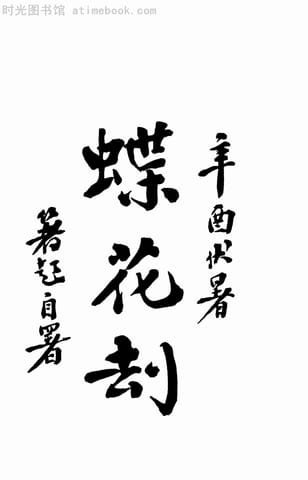 时光图书馆 atimebook.com
辛酉伏暑
蝶花劫
箸超自署